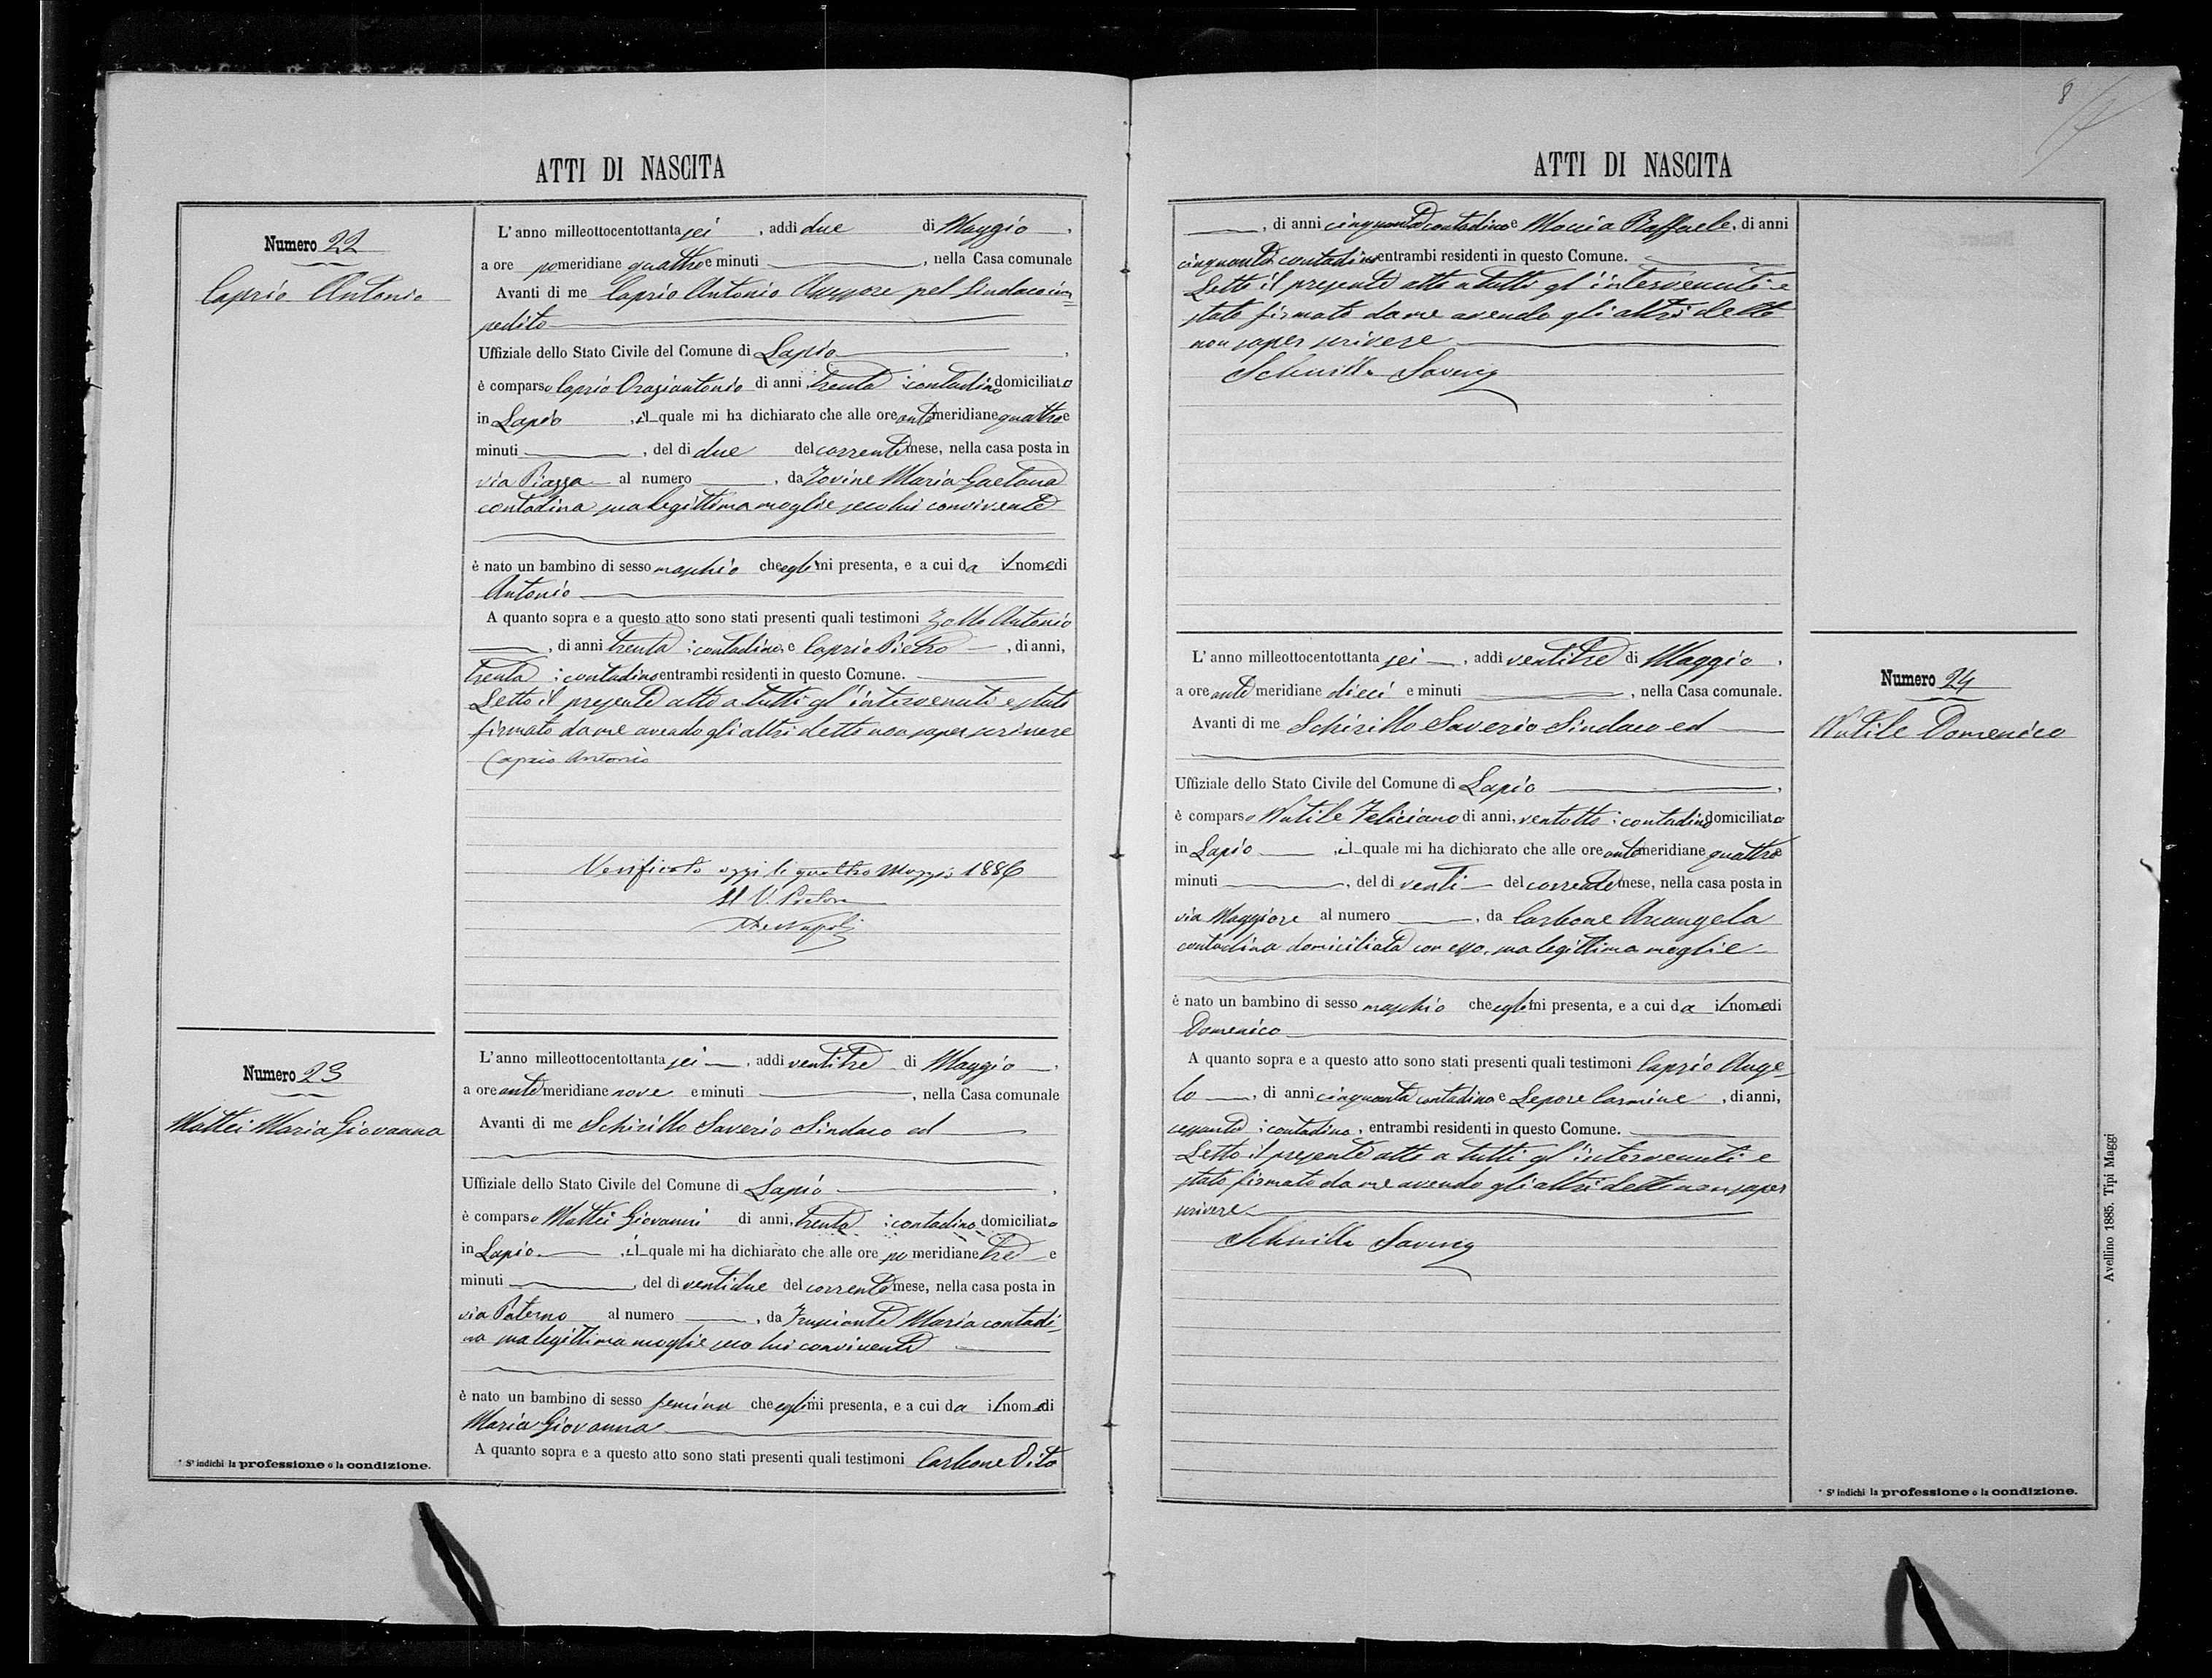 8
ATTI DI NASCITA
Numero 22
Caprio Antonio
L'anno milleottocentottanta sei, addi due di Maggio,
a ore pomeridiane quattro e minuti, nella Casa comunale
Avanti di me Caprio Antonio Assessore pel Sindaco im=
pedito
Uffiziale dello Stato Civile del Comune di Lapio,
è comparso Caprio Oraziantonio di anni trenta contadino domiciliato
in Lapio, il quale mi ha dichiarato che alle ore antimeridiane quattro e
minuti, del di due del corrente mese, nella casa posta in
via Piazza al numero, da Iovine Maria Gaetana
contadina sua legittima moglie seco lui convivente
è nato un bambino di sesso maschio che egli mi presenta, e a cui da il nome di
Antonio
A quanto sopra e a questo atto sono stati presenti quali testimoni Zollo Antonio
, di anni trenta contadino, e Caprio Pietro, di anni,
trenta contadino entrambi residenti in questo Comune.
Letto il presente atto a tutti gl'intervenuti e stato
firmato da me avendo gli altri detto non saper scrivere
Caprio Antonio
Verificato oggi li quattro Maggio 1886
Il V. Pretore
De Napoli
Numero 23
Mattei Maria Giovanna
L'anno milleottocentottanta sei, addi ventitre di Maggio,
a ore antimeridiane nove e minuti, nella Casa comunale
Avanti di me Schirillo Saverio Sindaco ed
Uffiziale dello Stato Civile del Comune di Lapio,
è comparso Mattei Giovanni di anni, trenta contadino, domiciliato
in Lapio, il quale mi ha dichiarato che alle ore pomeridiane tre e
minuti, del di ventidue del corrente mese, nella casa posta in
via Paterno al numero, da Maria contadi-
na sua legittima moglie seco lui convivente
è nato un bambino di sesso femina che egli mi presenta, e a cui da il nome di
Maria Giovanna
A quanto sopra e a questo atto sono stati presenti quali testimoni Carbone Vito
* S' indichi la professione o la condizione.
ATTI DI NASCITA
, di anni cinquanta contadino e Moccia Raffaele, di anni
cinquanta contadino entrambi residenti in questo Comune.
Letto il presente atto a tutti gl'intervenuti e
stato firmato da me avendo gli altri detto
non saper scrivere
Schirillo Saverio
Numero 24
Nutile Domenico
L'anno milleottocentottanta sei, addi ventitre di Maggio,
a ore antimeridiane dieci e minuti, nella Casa comunale.
Avanti di me Schirillo Saverio Sindaco ed
Uffiziale dello Stato Civile del Comune di Lapio,
è comparso Nutile Feliciano di anni, ventotto contadino domiciliato
in Lapio, il quale mi ha dichiarato che alle ore antimeridiane quattro e
minuti, del di venti del corrente mese, nella casa posta in
via Maggiore al numero, da Carbone Arcangela
contadina domiciliata con esso, sua legittima moglie
è nato un bambino di sesso maschio che egli mi presenta, e a cui da il nome di
Domenico
A quanto sopra e a questo atto sono stati presenti quali testimoni Caprio Ange-
lo, di anni cinquanta contadino e Lepore Carmine, di anni,
sessanta contadino, entrambi residenti in questo Comune.
Letto il presente atto a tutti gl'intervenuti e
stato firmato da me avendo gli altri detto non saper
scrivere
Schirillo Saverio
* S' indichi la professione o la condizione.
Avellino 1885. Tipi Maggi